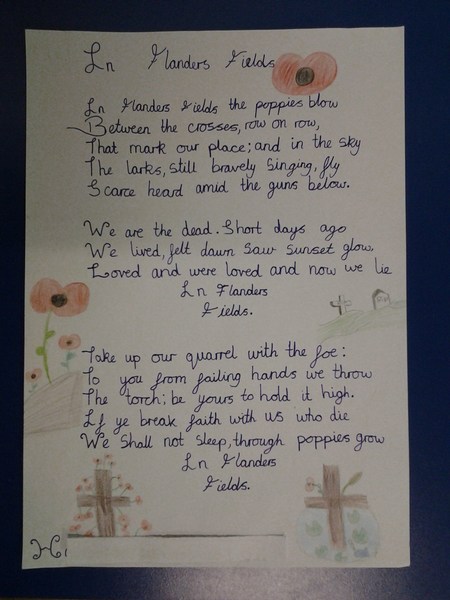 In Flanders Fields
In Flanders Fields the poppies blow
Between the crosses, row on row,
That mark our place; and in the sky
The larks, still bravely Singing, fly
Scarce heard amid the guns below.
We are the dead. Short days ago
We lived, felt dawn Saw Sunset glow,
Loved and were loved and now we lie
In Flanders
Fields.
Take up our quarrel with the foe:
To you from failing hands we throw
The torch; be yours to hold it high.
If ye break faith with us who die
We Shall not Sleep, through poppies grow
In Flanders
Fields.